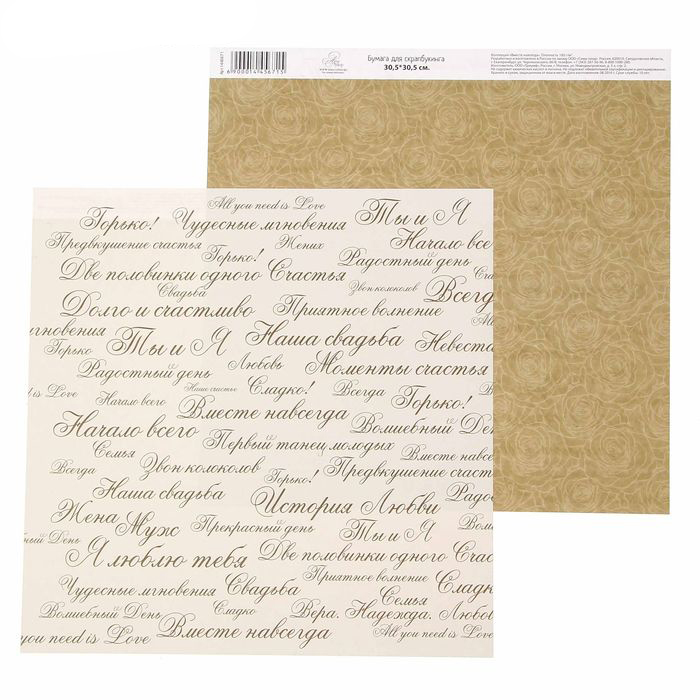 Бумага для скрапбукинга
30,5*30,5 см.
6 900014 436713
All you need is Love
Горько! Чудесные мгновения Ты и Я
Предвкушение счастья Жених Начало все
Горько! Радостный день
Две половинки одного Счастья
Свадьба Звон колоколов Всегд
Долго и счастливо Приятное волнение
мгновения Ты и Я Наша свадьба Невеста
Горько Любовь Моменты счастья
Радостный день
Наше счастье Сладко! Всегда Горько!
ed is Love Начало всего Вместе навсегда
Начало всего Волшебный Ден
Первый танец молодых
Семья Вместе навсе
Всегда Звон колоколов Предвкушение счаст
Горько!
Наша свадьба История Любви Радос
Жена Муж Прекрасный день Ты и Я
ный День
Я люблю тебя Две половинки одного Счас
Приятное волнение
Чудесные мгновения Свадьба Сладк
Семья
Волшебный День Сладко Вера. Надежда. Любов
you need is Love Вместе навсегда All you need is Love